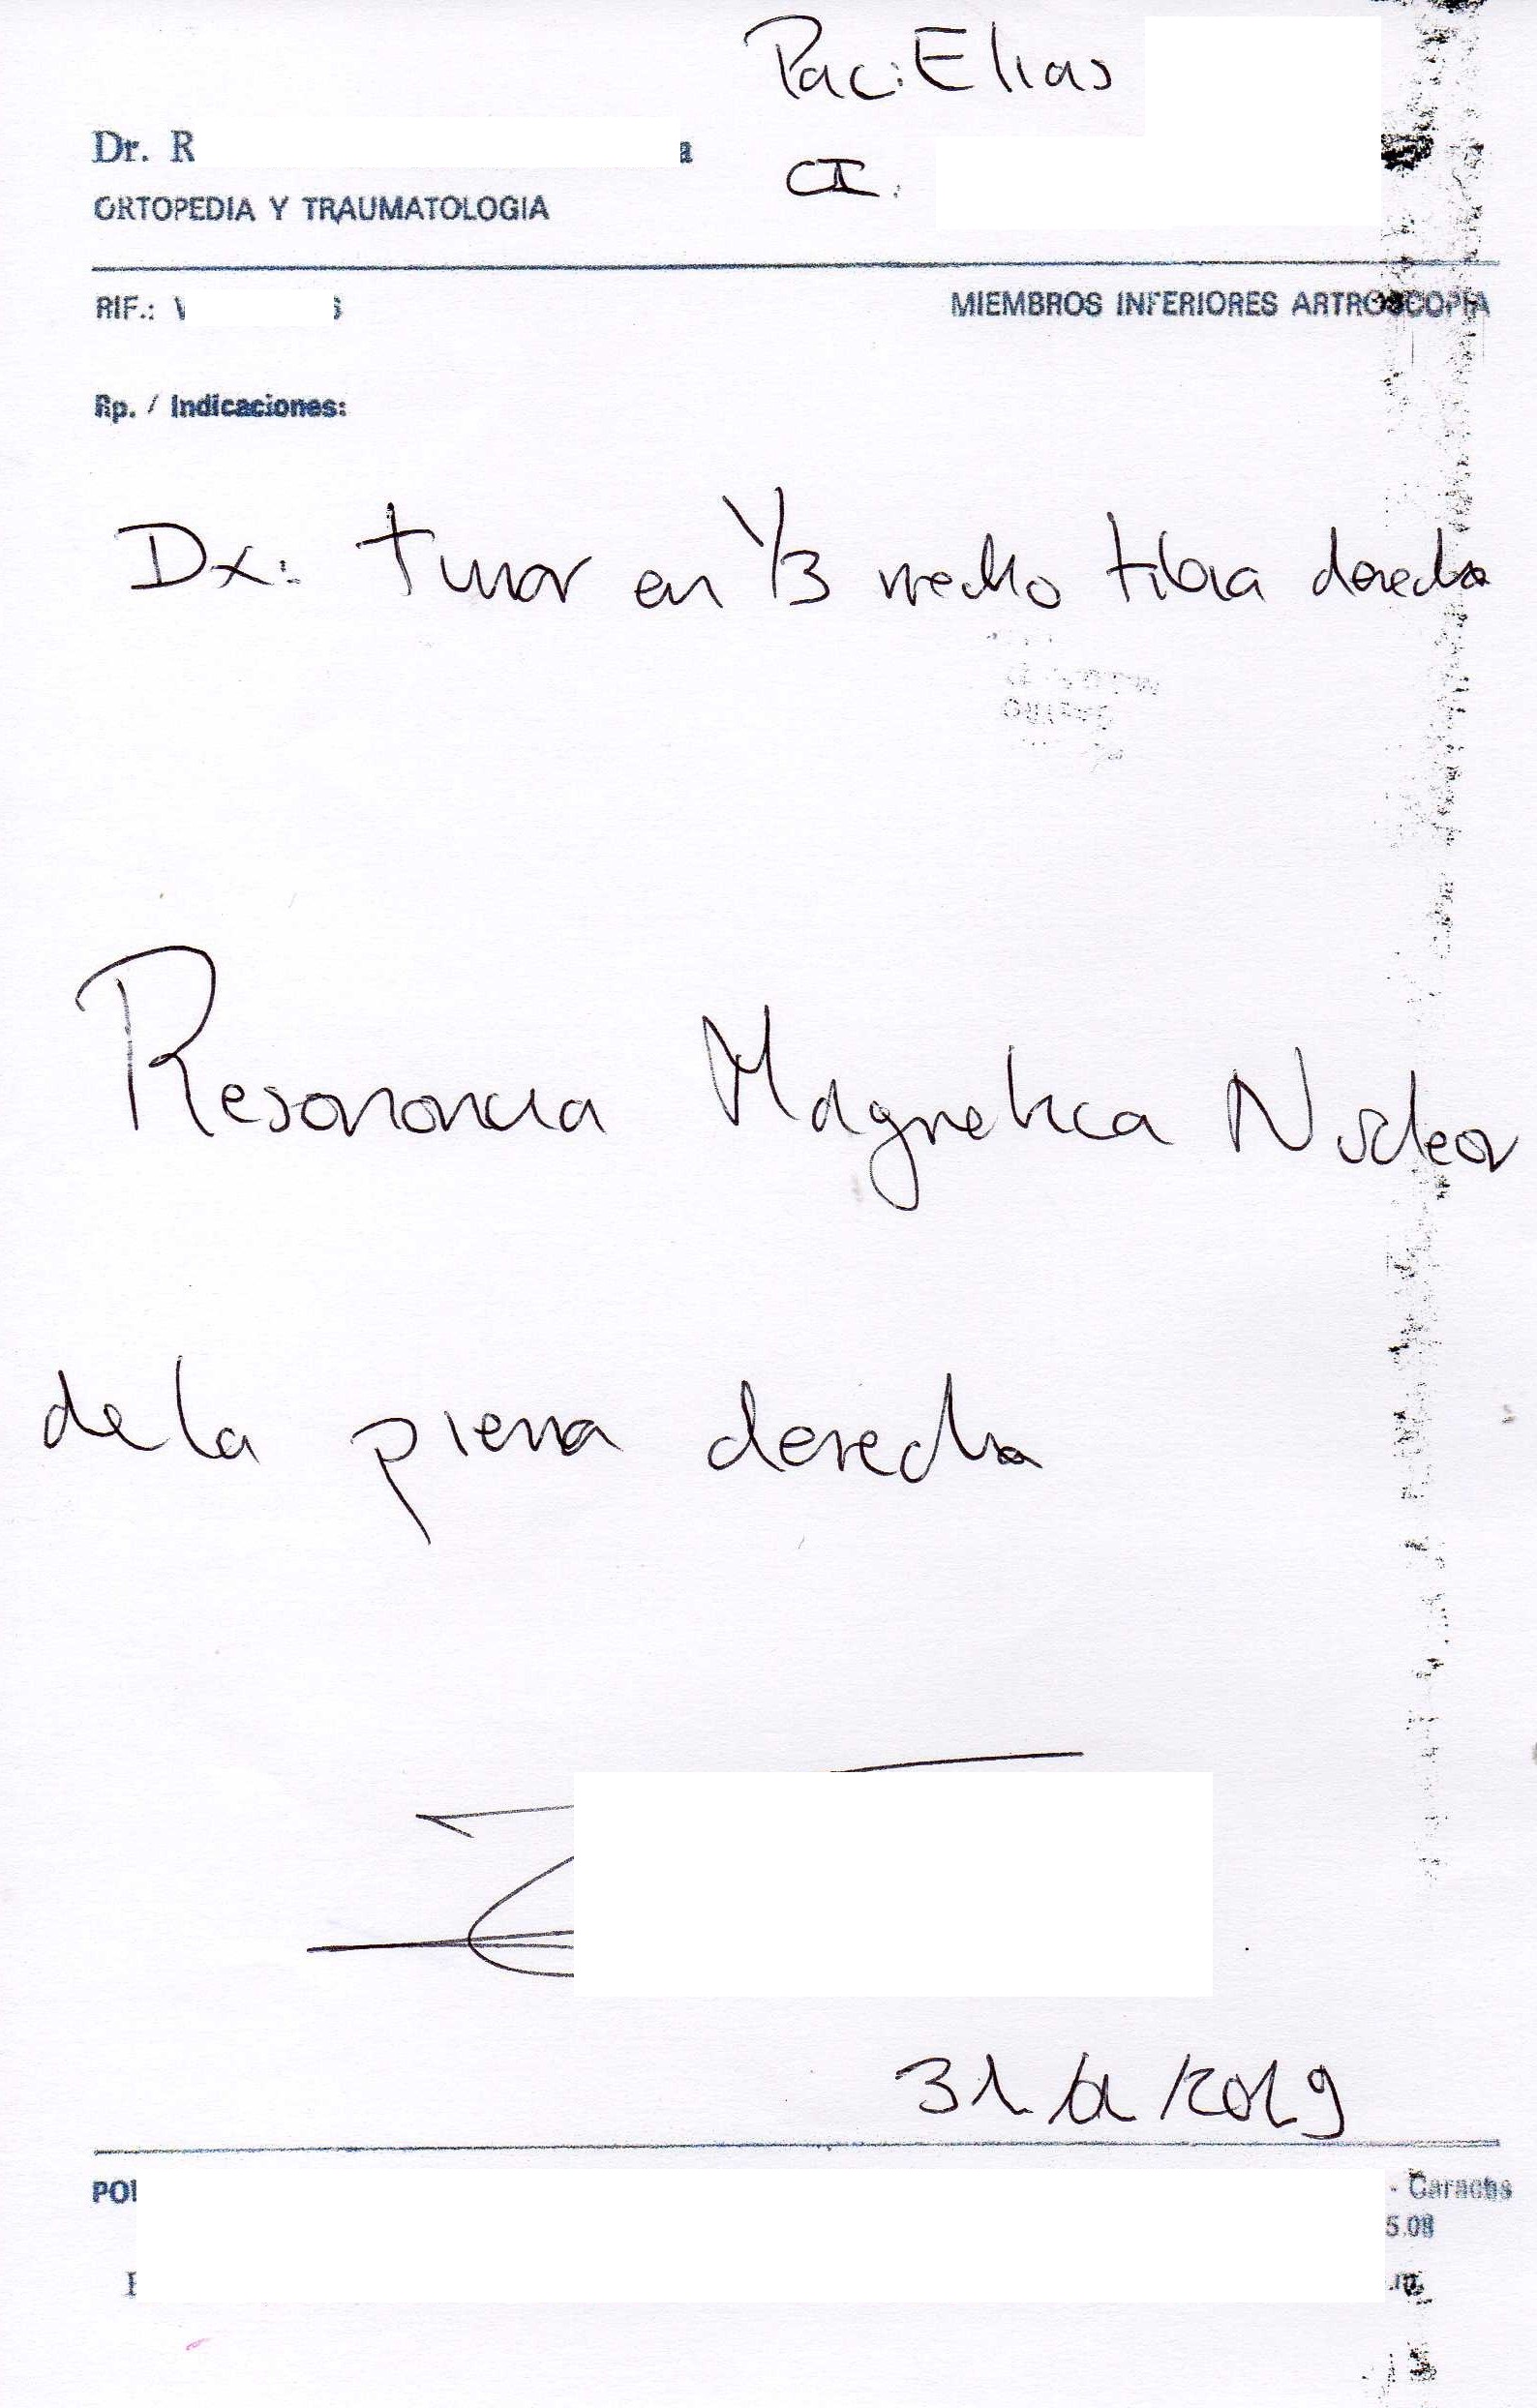 Pac: Elias
Dr. R a
CI:
ORTOPEDIA Y TRAUMATOLOGIA
RIF.: V
MIEMBROS INFERIORES ARTROSCOPIA
Rp. / Indicaciones:
Dx: tumor en 1/3 medio tibia derecha
Resonancia Magnetica Nuclear
de la pierna derecha
31 /2019
POI - Caracas
5.08